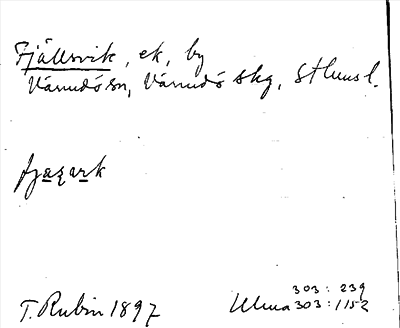 Fjällsvik, ek, by
Värmdö sn, Värmdö skg, Sthms l.
fjazark
T. Rubin 1897
303: 239
Ulma 303: 1152